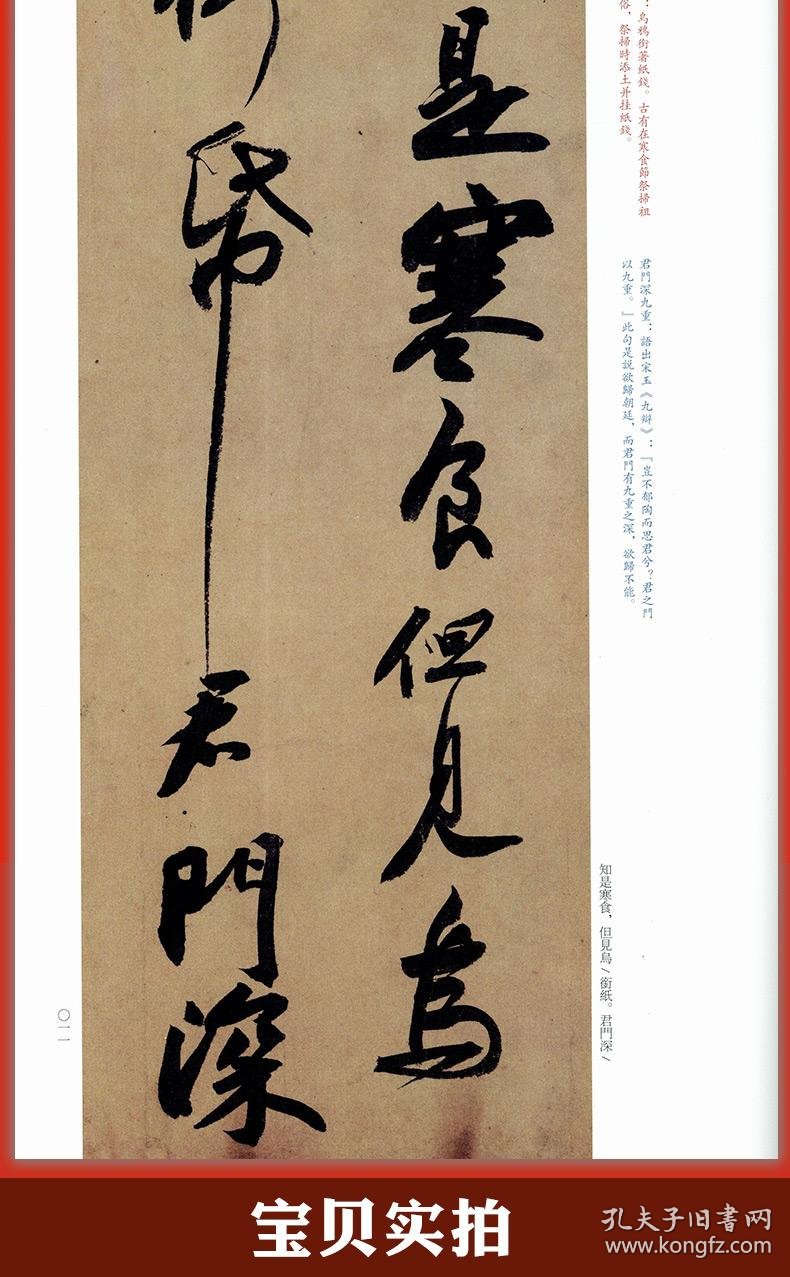 ：烏鴉銜著紙錢。古有在寒食節祭掃祖
俗，祭掃時添土并挂紙錢。
君門深九重：語出宋玉《九辯》：『豈不郁陶而思君兮？君之門
以九重。』此句是説欲歸朝廷，而君門有九重之深，欲歸不能。
知是寒食，但見烏/銜紙。君門深/
是寒食但見烏
帋君門深
〇一一
宝贝实拍
孔夫子旧书网
www.kongfz.com